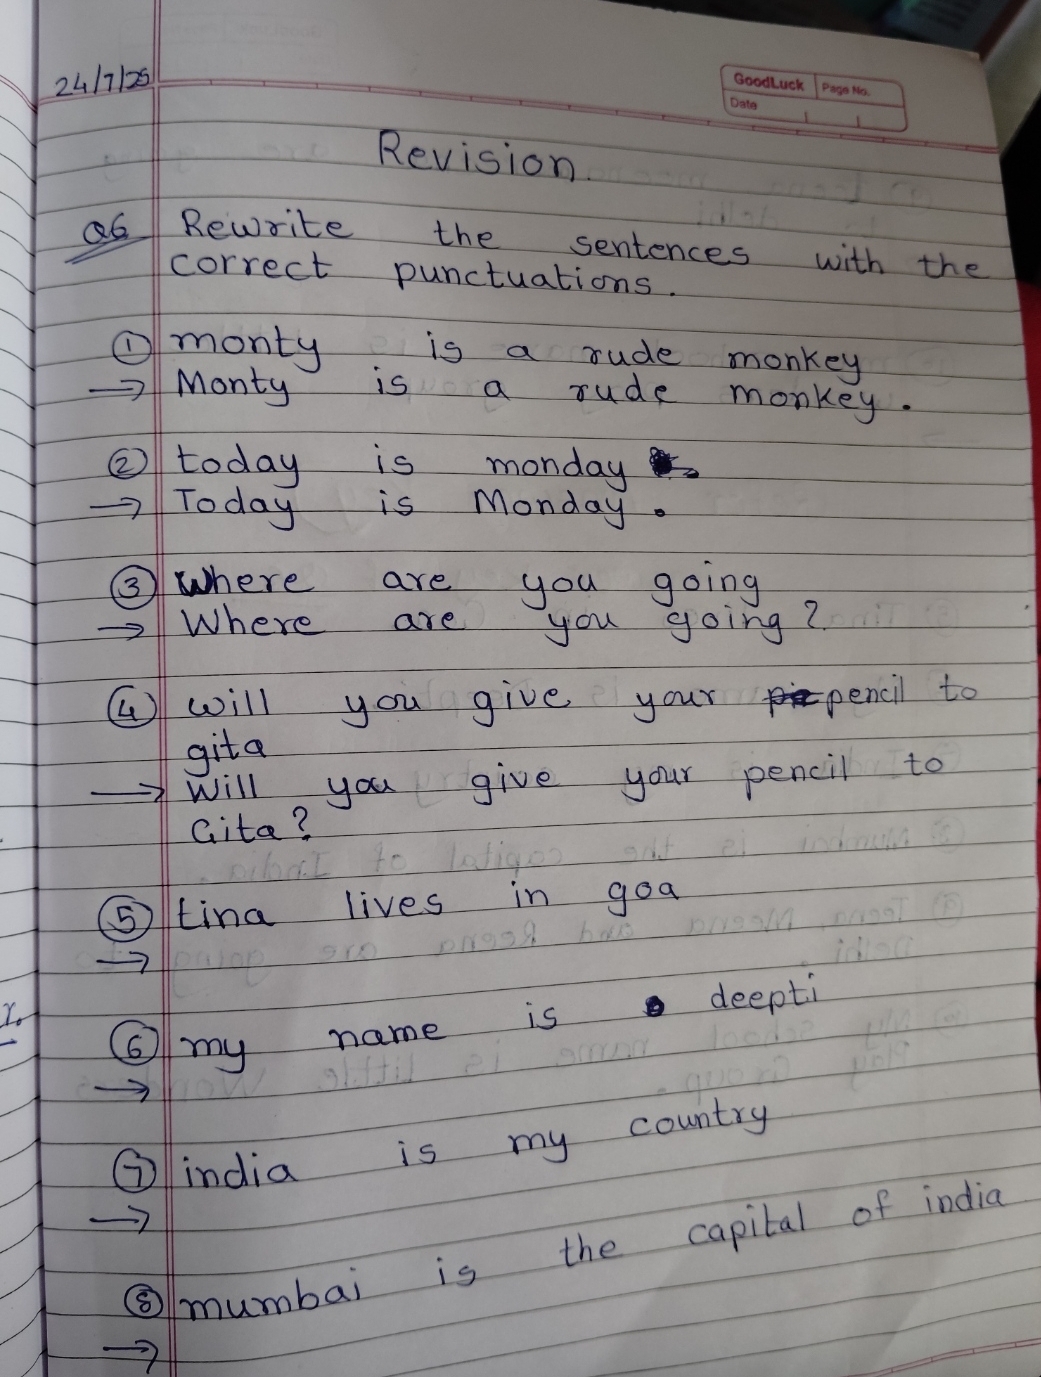 24/7/25
GoodLuck Page No.
Date
Revision
Q6 Rewrite the sentences with the
correct punctuations.
① monty is a rude monkey
→ Monty is a rude monkey.
② today is monday
→ Today is Monday.
③ where are you going
→ Where are you going?
④ will you give your pencil to
gita
→ Will you give your pencil to
Gita?
⑤ tina lives in goa
→
⑥ my name is deepti
→
⑦ india is my country
→
⑧ mumbai is the capital of india
→